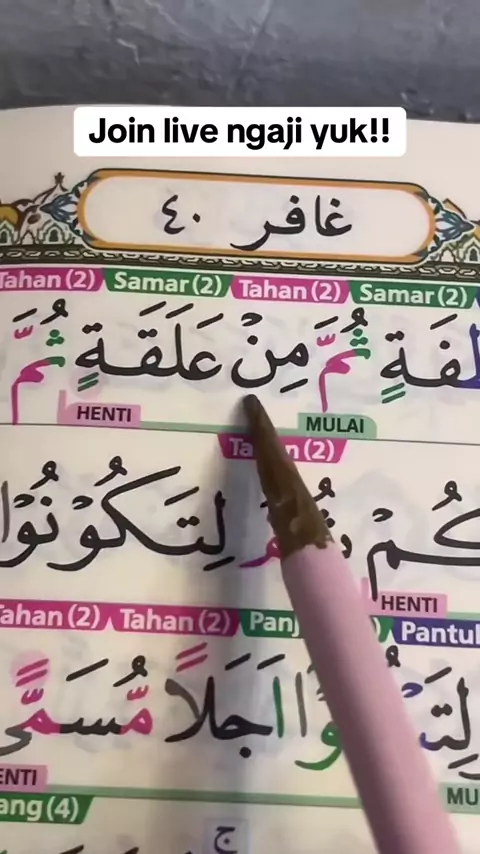 Join live ngaji yuk!!
غافر ٤٠
Tahan (2) Samar (2) Tahan (2) Samar (2)
ـفَةٍ ثُمَّ مِنْ عَلَقَةٍ ثُمَّ
HENTI MULAI
Tahan (2)
ـكُمْ ثُمَّ لِتَكُوْنُوْا
HENTI
Tahan (2) Tahan (2) Panj Pantul
اَجَلًا مُّسَمًّى
ENTI MU
ang (4)
ج